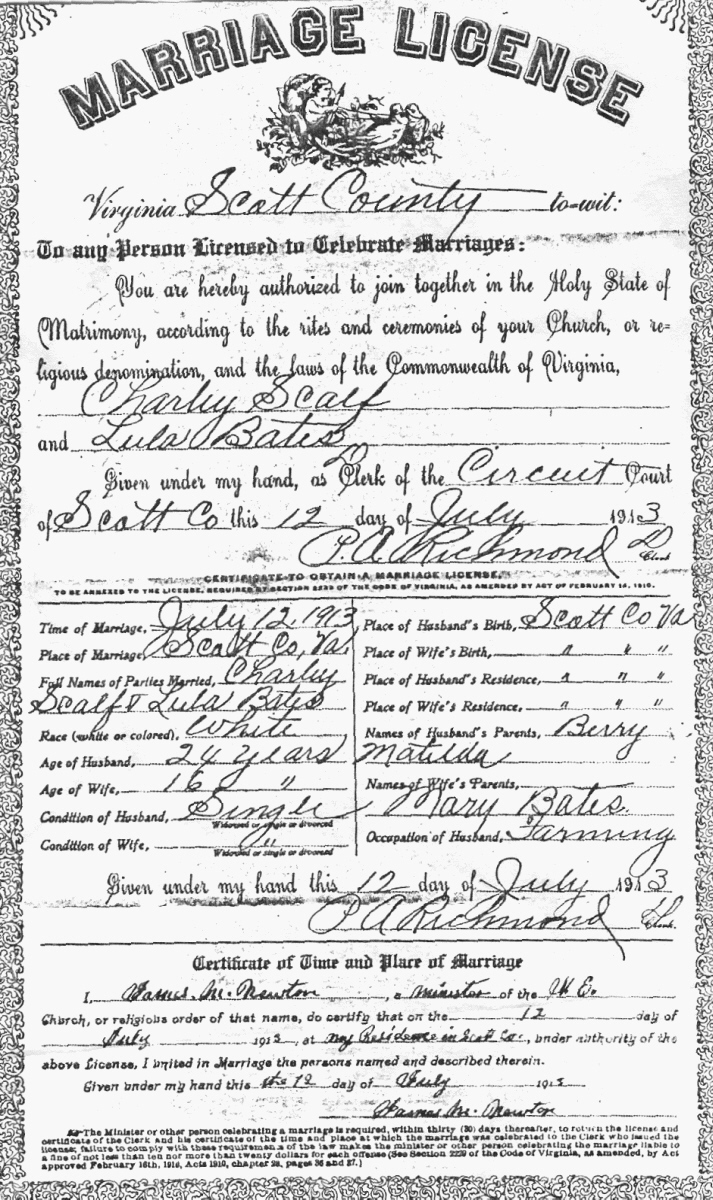 MARRIAGE LICENSE
Virginia Scott County to-wit:
To any Person Licensed to Celebrate Marriages:
You are hereby authorized to join together in the Holy State of
Matrimony, according to the rites and ceremonies of your Church, or re-
ligious denomination, and the laws of the Commonwealth of Virginia,
Charley Scalf
and Lula Bates
Given under my hand, as Clerk of the Circuit Court
of Scott Co this 12 day of July 1913
P. A. Richmond Clerk
CERTIFICATE TO OBTAIN A MARRIAGE LICENSE,
TO BE ANNEXED TO THE LICENSE, REQUIRED BY SECTION 2229 OF THE CODE OF VIRGINIA, AS AMENDED BY ACT OF FEBRUARY 16, 1910.
Time of Marriage, July 12, 1913
Place of Marriage, Scott Co, Va.
Full Names of Parties Married, Charley
Scalf & Lula Bates
Race (white or colored), White
Age of Husband, 24 years
Age of Wife, 16 "
Condition of Husband, Single
Widowed or single or divorced
Condition of Wife, "
Widowed or single or divorced
Place of Husband's Birth, Scott Co Va
Place of Wife's Birth, " " "
Place of Husband's Residence, " " "
Place of Wife's Residence, " " "
Names of Husband's Parents, Berry
Matilda
Names of Wife's Parents,
Mary Bates.
Occupation of Husband, Farming
Given under my hand this 12 day of July 1913
P. A. Richmond Clerk.
Certificate of Time and Place of Marriage
I, James. M. Newton, a minister of the M. E.
Church, or religious order of that name, do certify that on the 12 day of
July 1913, at my Residence in Scott Co., under authority of the
above License, I united in Marriage the persons named and described therein.
Given under my hand this the 12 day of July 1913
James M. Newton
The Minister or other person celebrating a marriage is required, within thirty (30) days thereafter, to return the license and
certificate of the Clerk and his certificate of the time and place at which the marriage was celebrated to the Clerk who issued the
license; failure to comply with these requirements of the law makes the minister or other person celebrating the marriage liable to
a fine of not less than ten nor more than twenty dollars for each offense (See Section 2229 of the Code of Virginia, as amended, by Act
approved February 16th, 1910, Acts 1910, chapter 28, pages 36 and 37.)